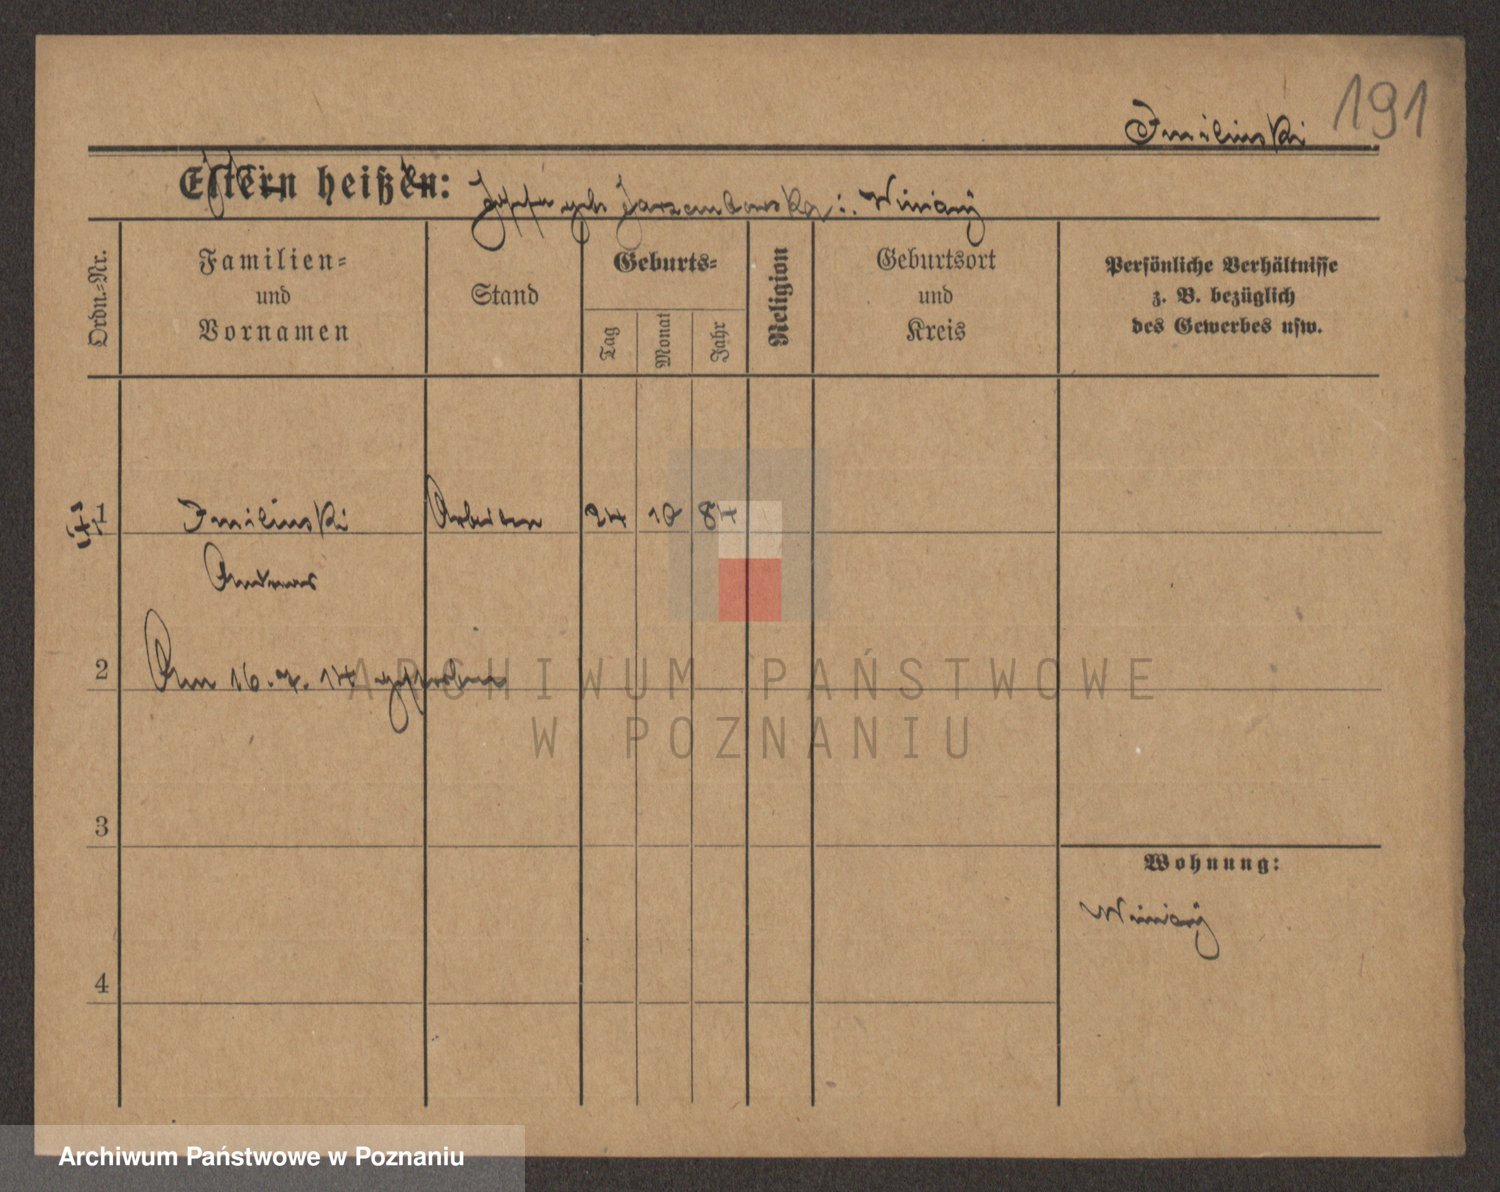 191
Imilinski
Eltern heißen: Josefa geb Jarzembowska i. Winiary
Ordn.-Nr.
Familien-
und
Vornamen
Stand
Geburts-
Tag
Monat
Jahr
Religion
Geburtsort
und
Kreis
Persönliche Verhältnisse
z. B. bezüglich
des Gewerbes usw.
1 Imilinski Arbeiter 24 10 84
Andreas
2 Am 16. 7. 14 gestorben
3
4
Wohnung:
Winiary
ARCHIWUM PAŃSTWOWE
W POZNANIU
Archiwum Państwowe w Poznaniu